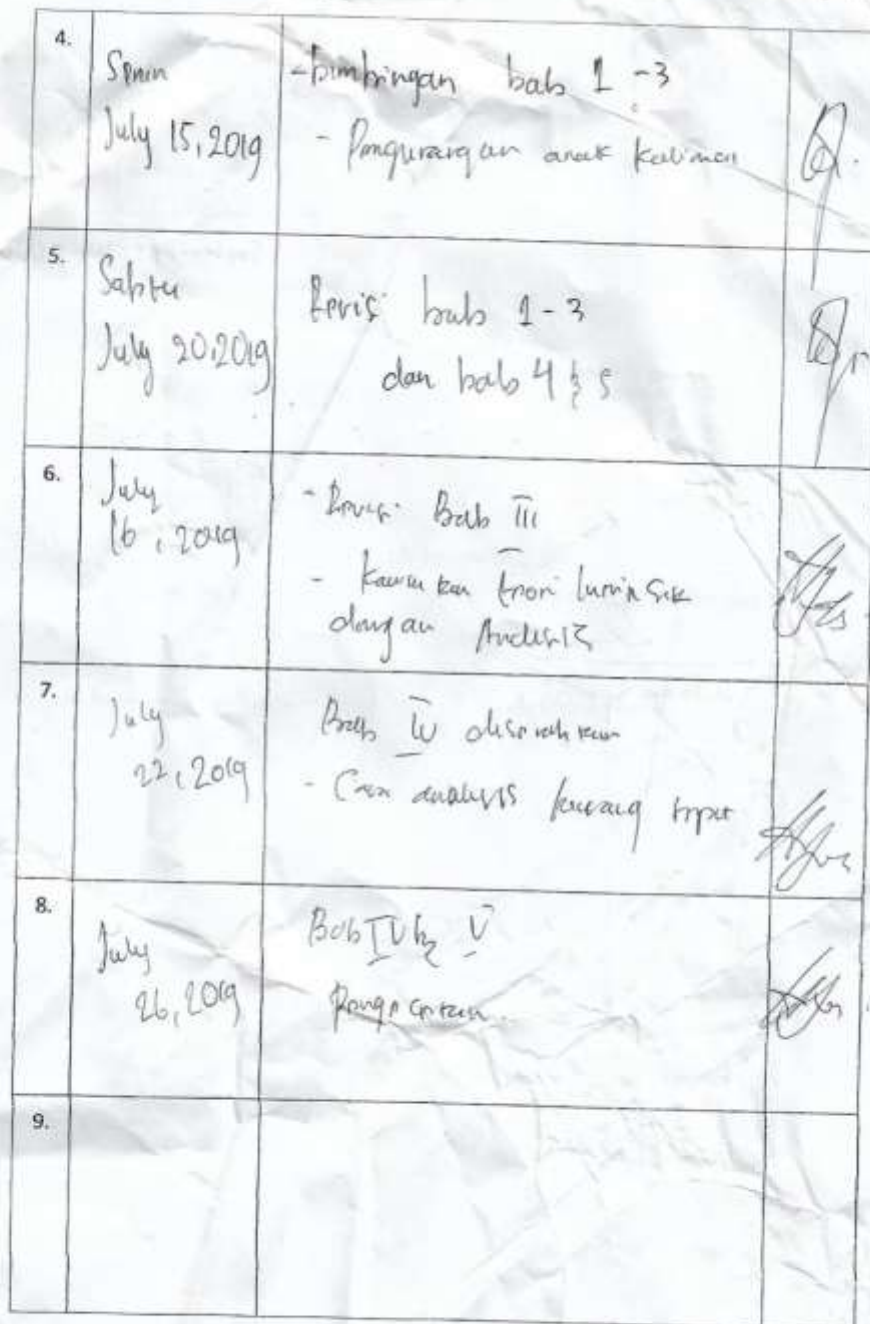 4.
Senin
July 15, 2019
- bimbingan bab 1 - 3
- Pengurangan anak kalimat
5.
Sabtu
July 20, 2019
Revisi bab 1 - 3
dan bab 4 & 5
6.
July
16, 2019
- Revisi Bab III
- teori
dengan Analisis
7.
July
22, 2019
Bab IV diserahkan
- Cara analisis kurang tepat
8.
July
26, 2019
Bab IV & V
9.